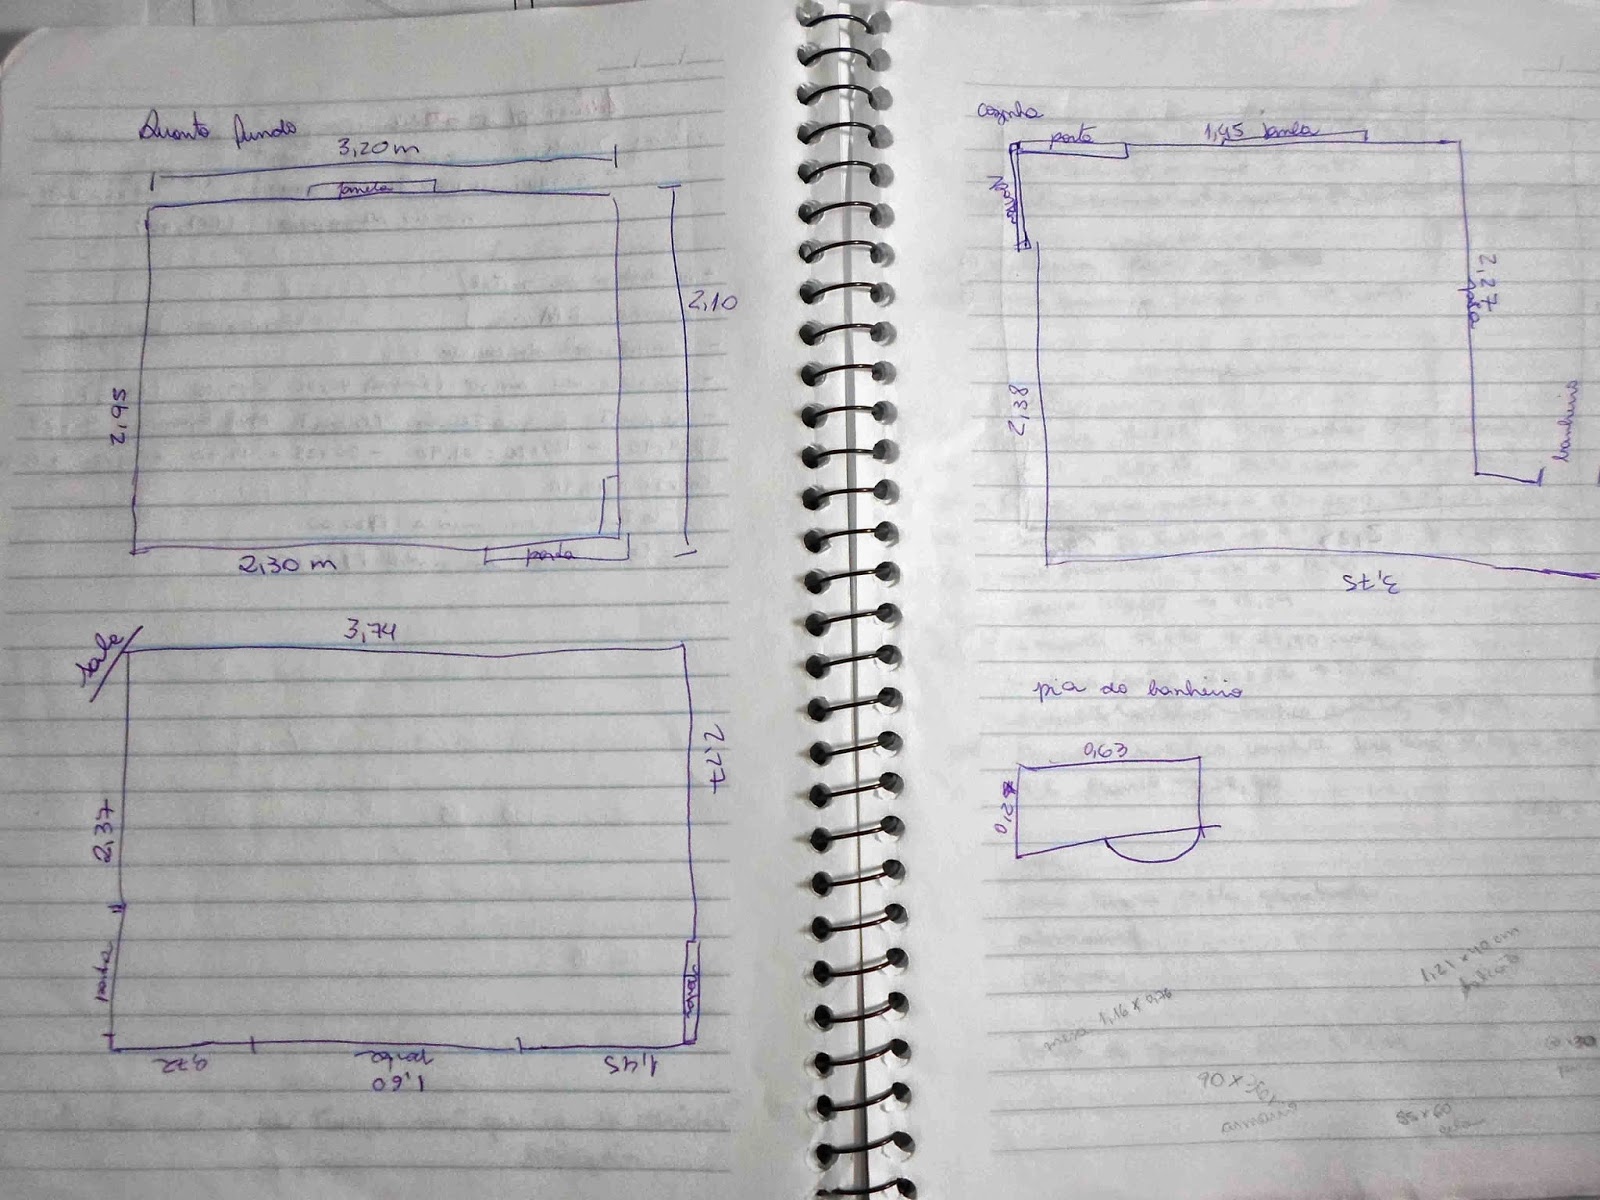 Quarto fundo
3,20 m
janela
2,10
2,95
2,30 m
porta
sala
3,74
2,27
2,37
porta
porta
972
porta
1,60
1,45
cozinha
porta
1,45 janela
porta
2,27
2,38
banheiro
3,75
pia do banheiro
0,63
0,28
1,21 x 40 cm
1,16 x 0,76
90 x
armario
85 x 60